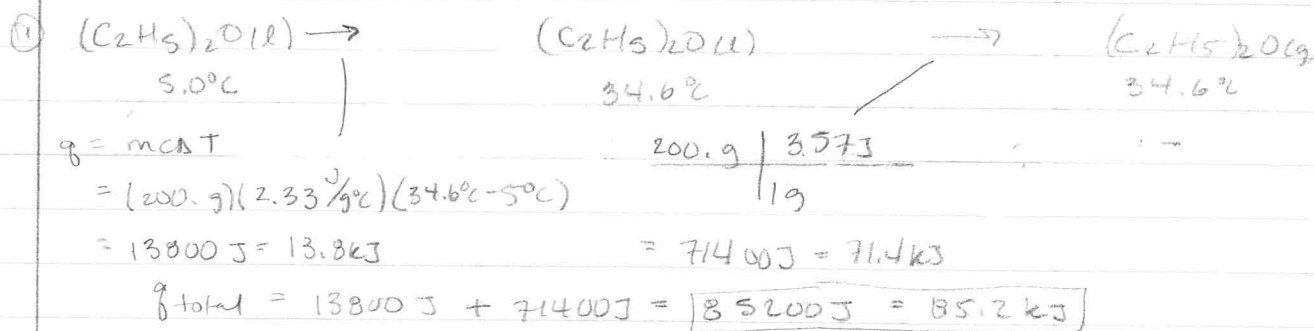 ① (C2H5)2O(l) → (C2H5)2O(l) → (C2H5)2O(g)
5.0°C 34.6°C 34.6°C
q = mcΔT 200. g | 3.57J
= (200. g)(2.33 J/g°C)(34.6°C-5°C) 1g
= 13800 J = 13.8kJ = 71400J = 71.4kJ
q total = 13800 J + 71400J = 85200J = 85.2 kJ